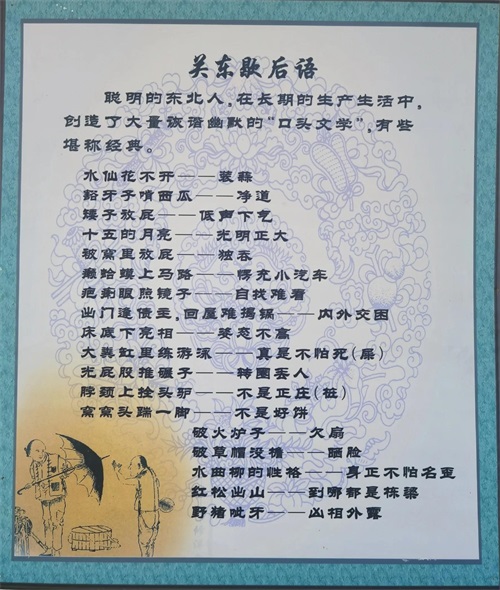 关东歇后语
聪明的东北人，在长期的生产生活中，
创造了大量诙谐幽默的“口头文学”，有些
堪称经典。
水仙花不开——装蒜
豁牙子啃西瓜——净道
矮子放屁——低声下气
十五的月亮——光明正大
被窝里放屁——独吞
癞蛤蟆上马路——愣充小汽车
疤瘌眼照镜子——自找难看
出门逢债主，回屋难揭锅——内外交困
床底下亮相——姿态不高
大粪缸里练游泳——真是不怕死（屎）
光屁股推碾子——转圈丢人
脖颈上拴头驴——不是正庄（桩）
窝窝头踹一脚——不是好饼
破火炉子——欠扇
破草帽没檐——晒脸
水曲柳的性格——身正不怕名歪
红松出山——到哪都是栋梁
野猪呲牙——凶相外露